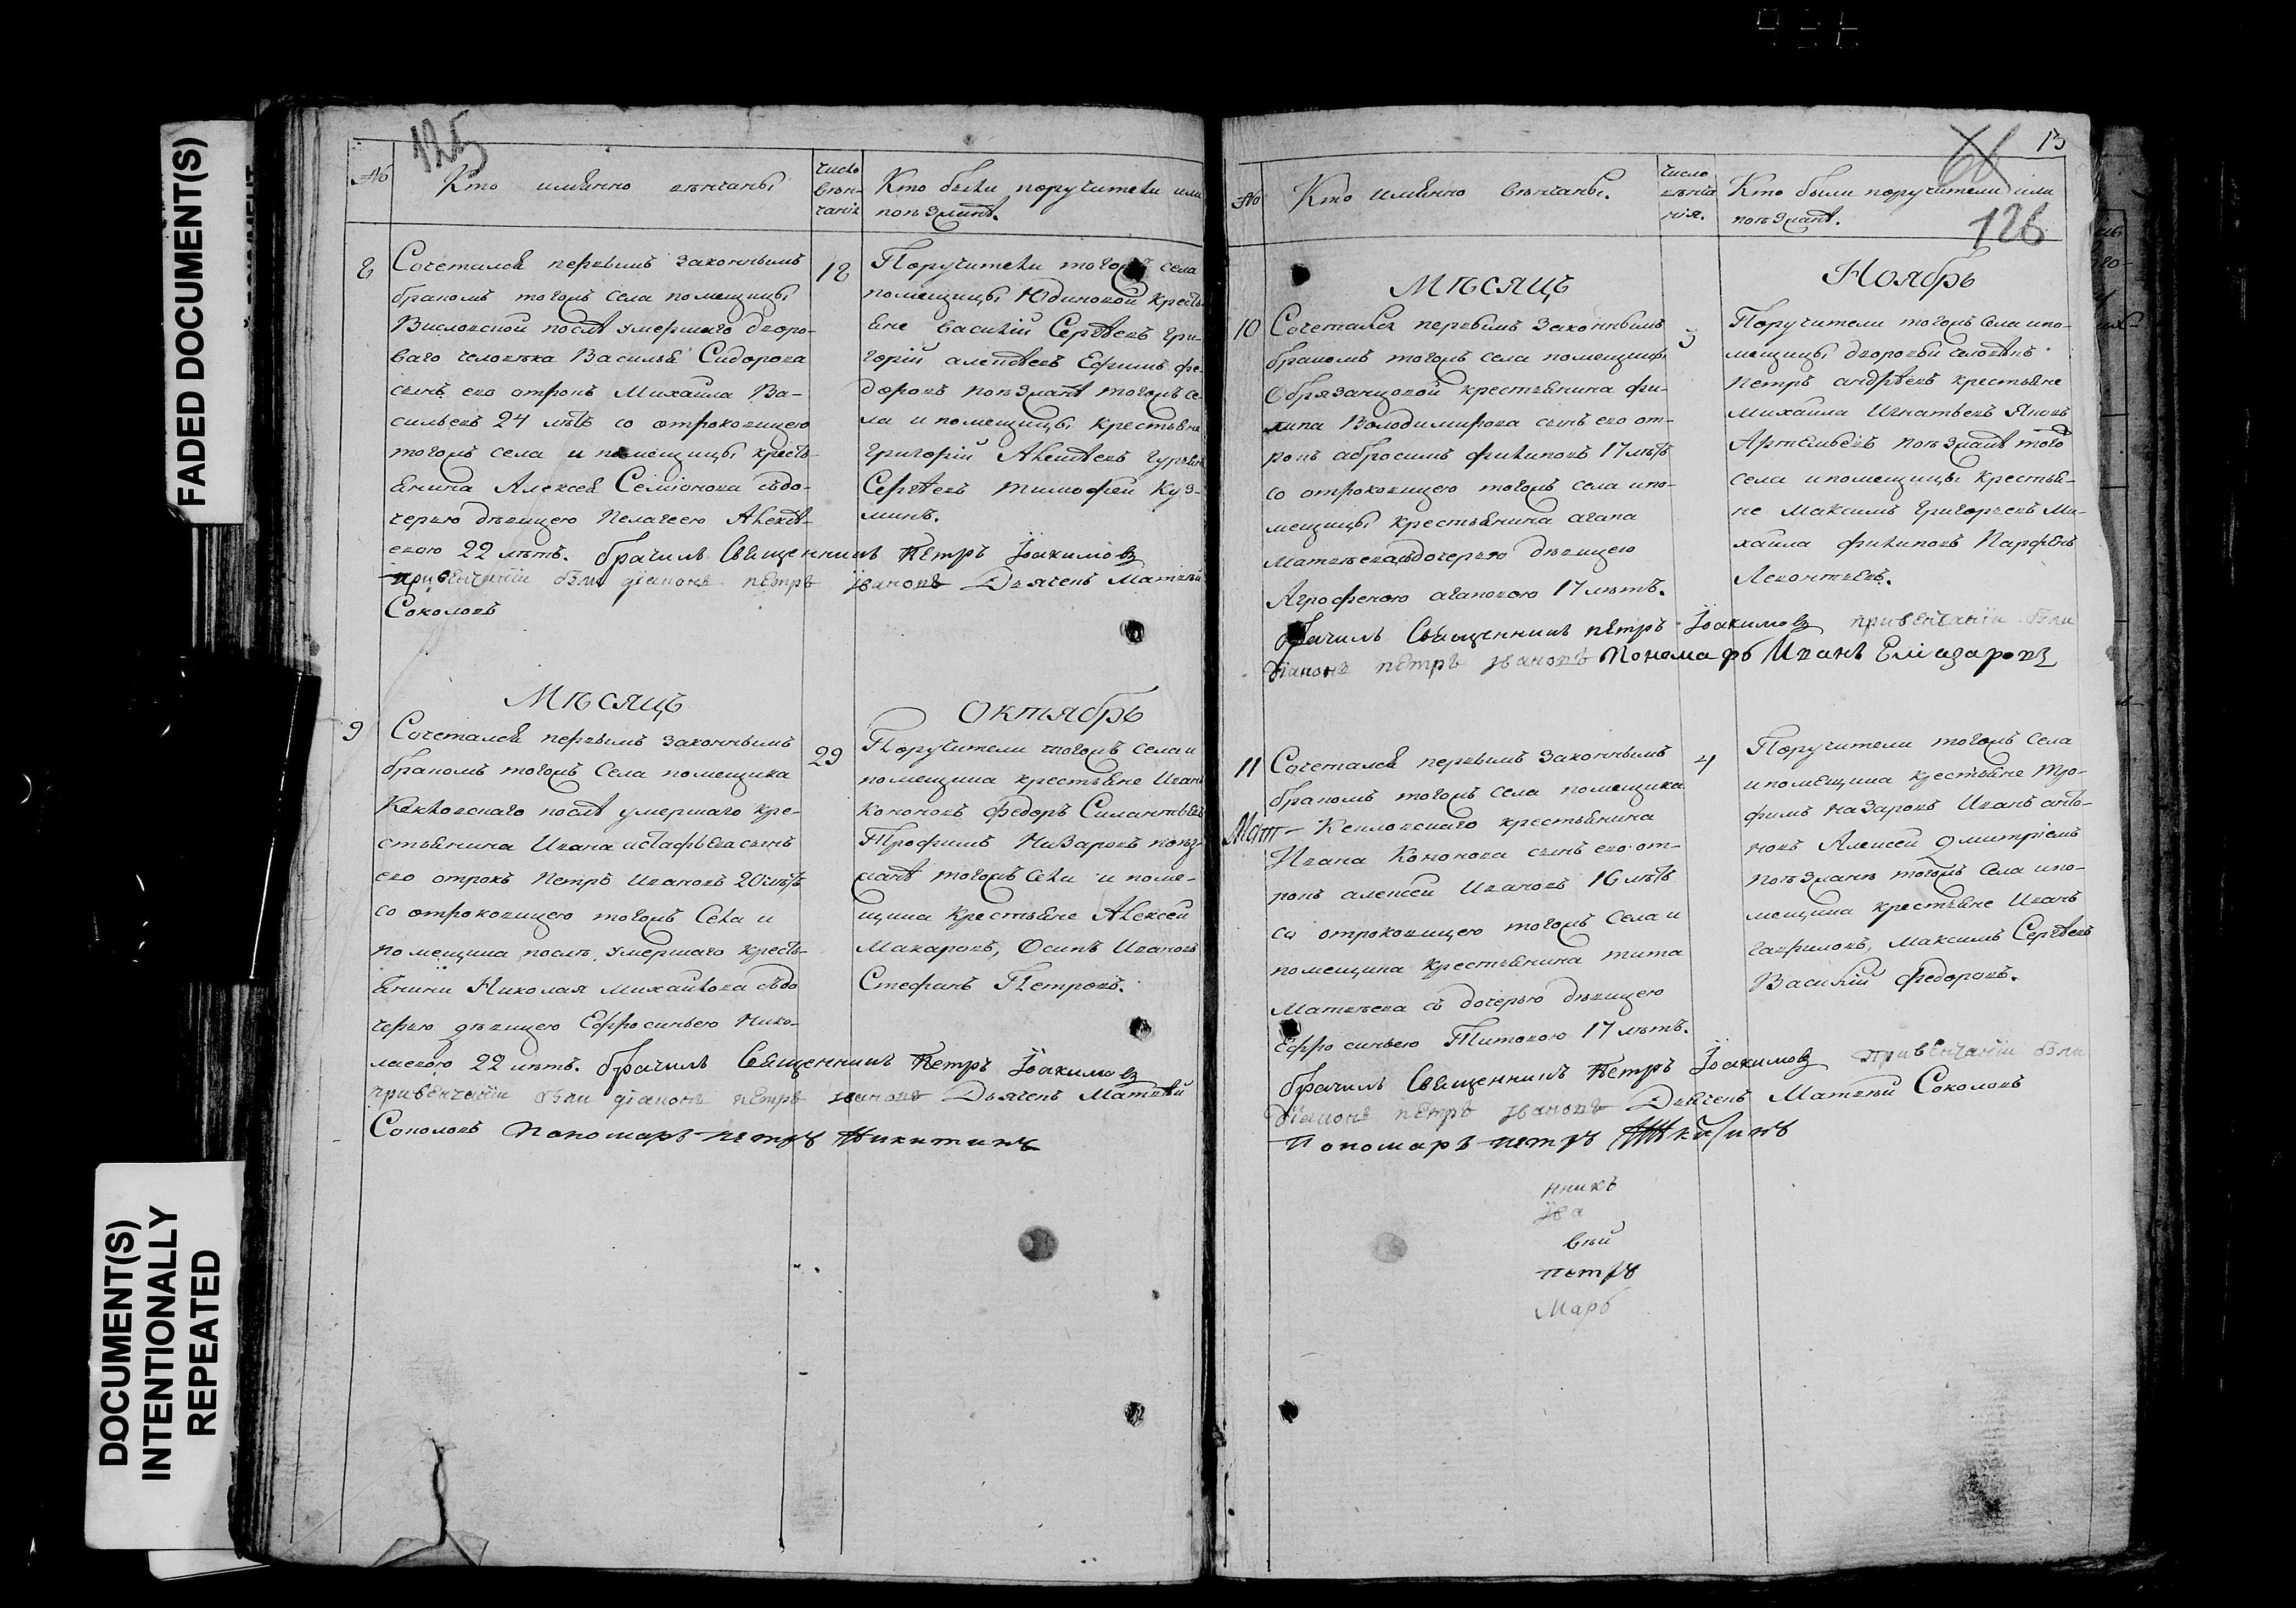 FADED DOCUMENT(S)
DOCUMENT(S)
INTENTIONALLY
REPEATED
125
№
Кто имѣнно вѣнчаны
число
вѣн-
чанія
Кто были поручители или
поѣзжанѣ.
8
Сочетался первымъ законнымъ
бракомъ тогожъ села помещицы
Висловской послѣ умершаго дворо-
ваго человѣка Василья Сидорова
сынъ его отрокъ Михаила Ва-
сильевъ 24 лѣтъ со отроковицею
тогожъ села и помещицы кресть-
янина Алексея Семіонова сьдо-
черью дѣвицею Пелагеею Алексѣ-
евою 22 лѣтъ. брачилъ Священникъ Петръ Іоакимовъ
привенчаніи были діаконъ петръ Ивановъ Дьячекъ Матвѣй
Соколовъ
18
Поручители тогожъ села
помещицы Юдиновой кресть-
яне василій Сергѣевъ гри-
горій алексѣевъ Ефимъ фе-
доровъ поѣзжанѣ тогожъ се-
ла и помещицы крестьяне
григорій Алексѣевъ гурьянъ
Сергѣевъ тимофей куз-
минъ.
Мѣсяцъ
Октябрь
9
Сочетался первымъ законнымъ
бракомъ тогожъ Села помещика
послѣ умершаго кре-
стьянина Ивана астафьева сынъ
его отрокъ Петръ Ивановъ 20 лѣтъ
со отроковицею тогожъ Села и
помещика послѣ умершаго кресть-
янини Николая михаилова сьдо
черью дѣвицею Ефросиньею Нико-
лаевою 22 лѣтъ. брачилъ Священникъ Петръ Іоакимовъ
привенчаніи были діаконъ петръ Ивановъ Дьячекъ Матвѣй
Соколовъ Пономарь петръ Никитинъ
29
Поручители тогожъ села и
помещика крестьяне Иванъ
Кононовъ федоръ Силантьевъ
Трофимъ Назаровъ поѣз-
жанѣ тогожъ села и поме-
щика крестьяне Алексей
Макаровъ, Осипъ Ивановъ
Стефанъ Петровъ.
13
66
126
№
Кто имѣнно вѣнчаны.
число
вѣнча
нія.
Кто были поручители или
поѣзжанѣ.
Мѣсяцъ
Ноябрь
10
Сочетался первымъ законнымъ
бракомъ тогожъ села помещицы
Обрязанцовой крестьянина фи-
липа Володимирова сынъ его от-
рокъ абросимъ филиповъ 17 лѣтъ
со отроковицею тогожъ села ипо-
мещицы крестьянина агапа
матвѣева здочерью дѣвицею
Агрофеною агаповою 17 лѣтъ.
брачилъ Священникъ петръ Іоакимовъ привенчаніи были
діаконъ петръ Ивановъ Пономарь Иванъ Елиазаровъ
3
Поручители тогожъ Села ипо-
мещицы дворовый человѣкъ
Петръ андрѣевъ крестьяне
михаила Игнатьевъ Яковъ
поѣзжанѣ того
села ипомещицы крестья-
не максимъ григорьевъ ми-
хаила филиповъ Парфенъ
Леонтьевъ.
11
Сочетался первымъ законнымъ
бракомъ тогожъ села помещика
крестьянина
Ивана Кононова сынъ его от-
рокъ алексеи Ивановъ 16 лѣтъ
со отроковицею тогожъ Села и
помещика крестьянина тита
Матвѣева съ дочерью дѣвицею
Ефросиньею Титовою 17 лѣтъ.
брачилъ Священникъ Петръ Іоакимовъ привенчаніи были
діаконъ петръ Ивановъ Дьячекъ Матвѣй Соколовъ
Пономарь петръ Никитинъ
4
Поручители тогожъ Села
ипомещика крестьяне Тро-
фимъ назаровъ Иванъ анто-
новъ Алексеи
поѣзжанѣ тогожъ Села ипо-
мещика крестьяне Иванъ
гавриловъ, максимъ Сергѣевъ
Василій федоровъ.
нникъ
Ива
вѣй
петръ
марь